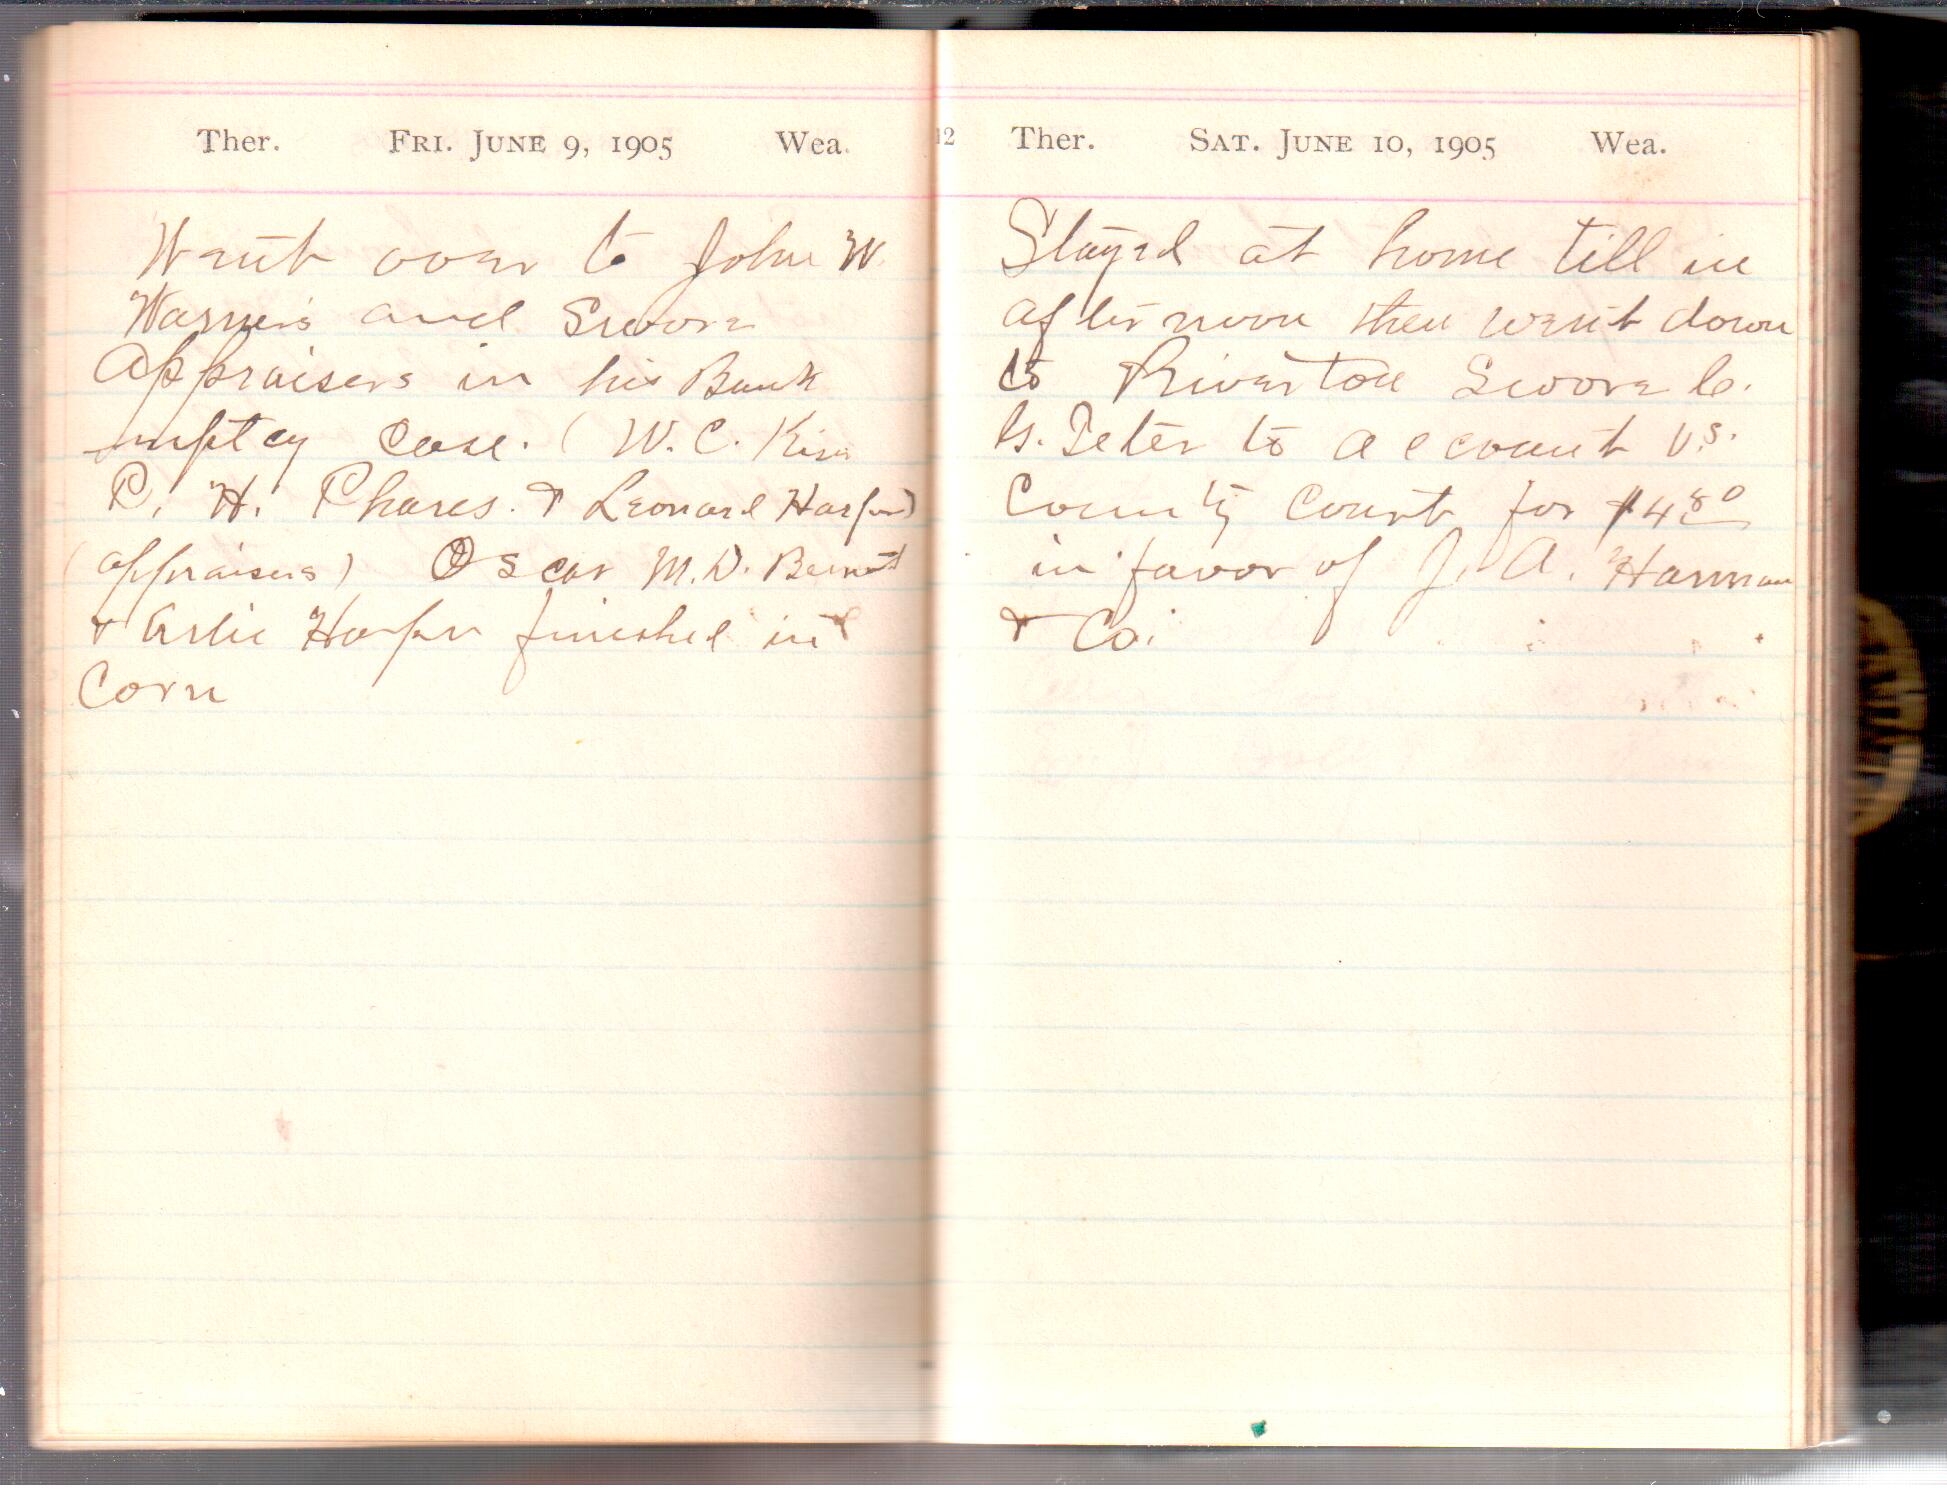 Ther. FRI. JUNE 9, 1905 Wea.
Went over to John W.
Warner's and Swore
Appraisers in his Bank
ruptcy case. (W. C. Kisn
P. H. Phares. & Leonard Harper)
(appraisers) Oscar M. D. Bennett
& Arlie Harper finished in
Corn
12
Ther. SAT. JUNE 10, 1905 Wea.
Stayed at home till in
afternoon then went down
to Riverton Swore C.
G. Teter to account vs.
County Court for $4 80
in favor of J. A. Harman
& Co.